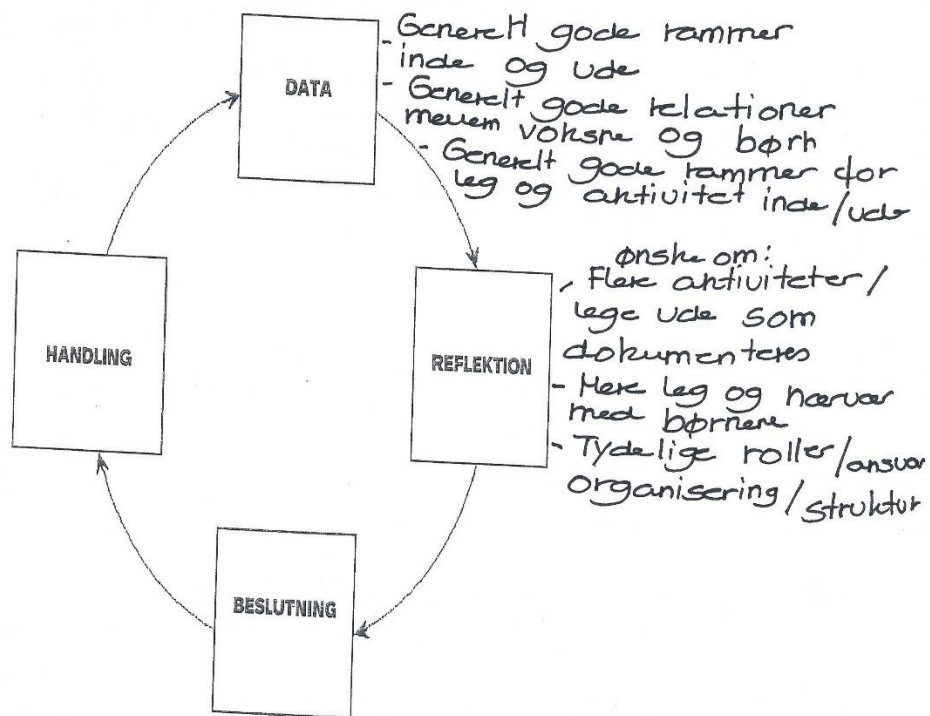 DATA
- Generelt gode rammer
inde og ude
- Generelt gode relationer
mellem voksne og børn
- Generelt gode rammer for
leg og aktivitet inde/ude
HANDLING
REFLEKTION
Ønske om:
- Flere aktiviteter/
lege ude som
dokumenteres
- Mere leg og nærvær
med børnene
- Tydelige roller/ansvar
organisering/struktur
BESLUTNING